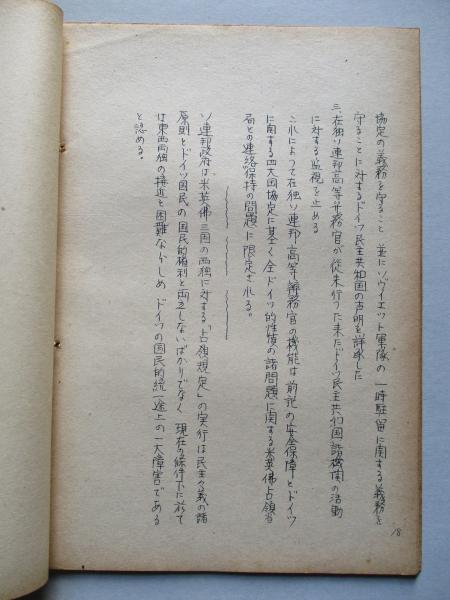 協定の義務を守ること 並にソヴイエット軍隊の一時駐留に関する義務を
守ることに対するドイツ民主共和国の声明を詳求した
三、在独ソ連邦高等弁務官が従来行つて来たドイツ民主共和国諸機関の活動
に対する監視を止める
これによつて在独ソ連邦高等弁務官の機能は前記の安全保障とドイツ
に関する四大国協定に基く全ドイツ的性質の諸問題に関する米英佛占領当
局との連絡保持の問題に限定される。
ソ連邦政府は、米英佛三国の西独に対する「占領規定」の実行は民主々義の諸
原則とドイツ国民の国民的権利と両立しないばかりでなく 現在の條件下に於て
は東西両独の接近を困難ならしめ ドイツの国民的統一途上の一大障害である
と認める。
18